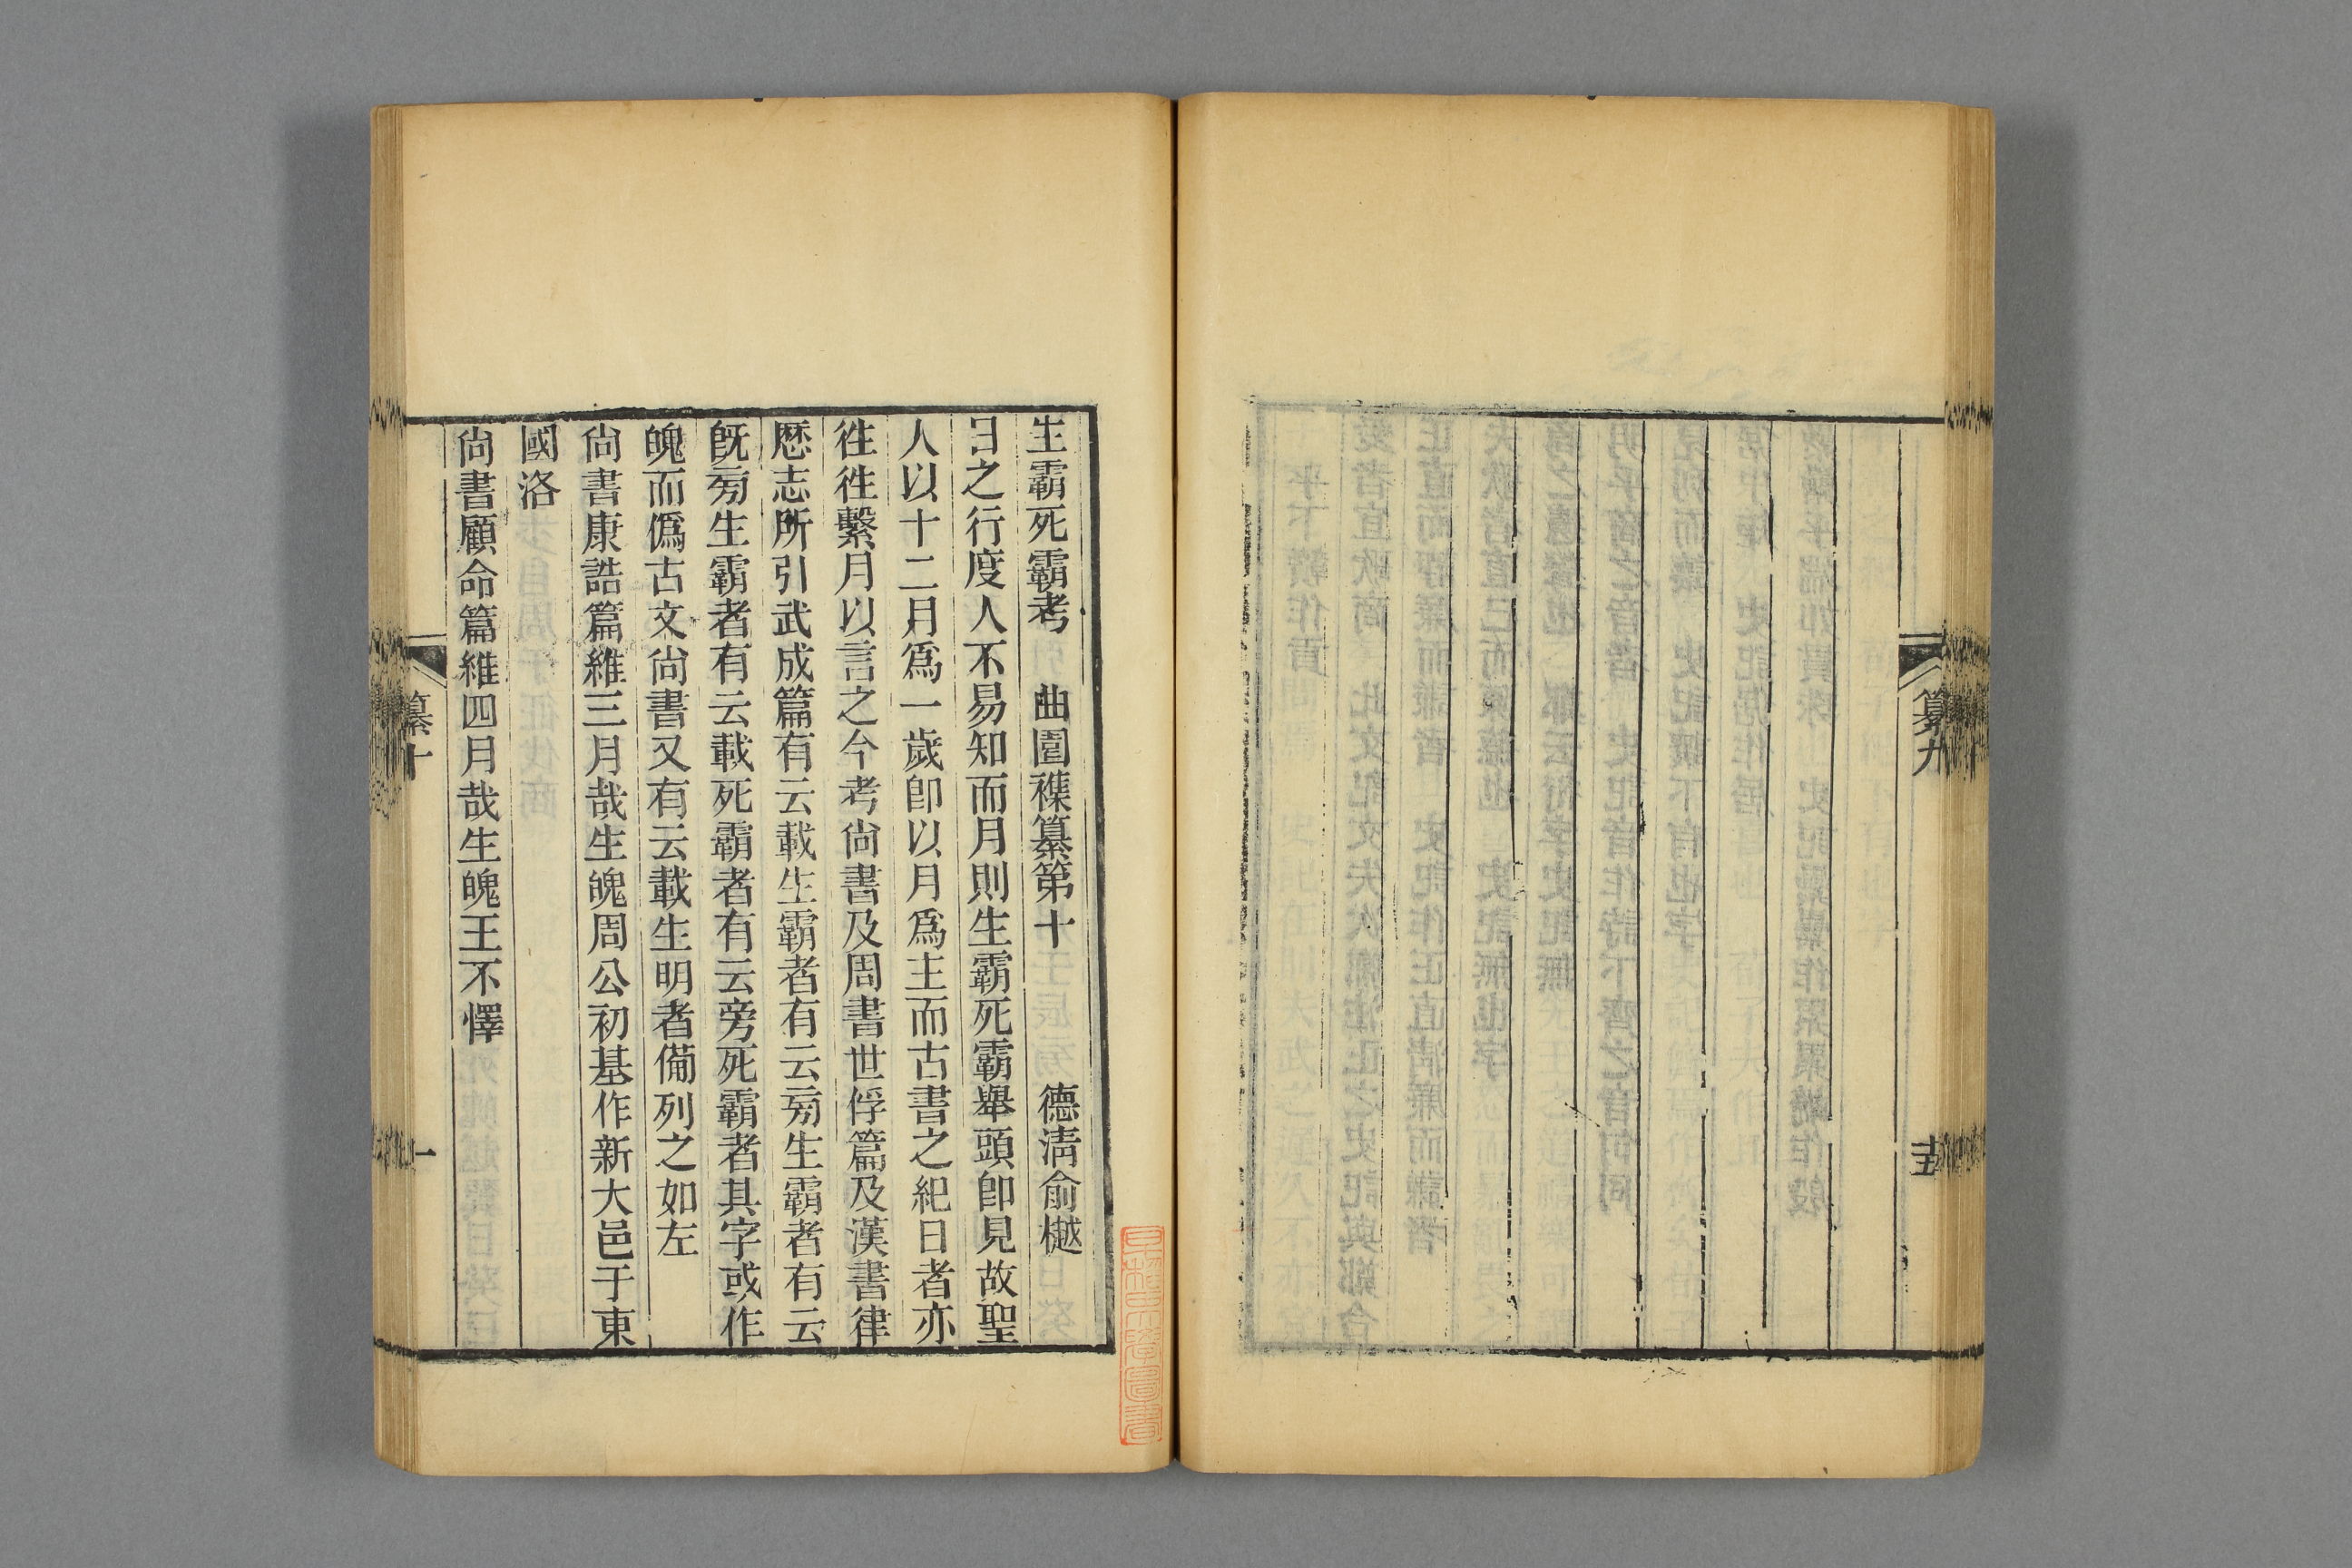 纂九
十五
生霸死霸考　曲園襍纂第十　德清俞樾
日之行度人不易知而月則生霸死霸舉頭卽見故聖
人以十二月爲一歲卽以月爲主而古書之紀日者亦
徃徃繫月以言之今考尙書及周書世俘篇及漢書律
厯志所引武成篇有云載生霸者有云㫄生霸者有云
旣㫄生霸者有云載死霸者有云旁死霸者其字或作
魄而僞古文尙書又有云載生明者備列之如左
尙書康誥篇維三月哉生魄周公初基作新大邑于東
國洛
尙書顧命篇維四月哉生魄王不懌
纂十
一